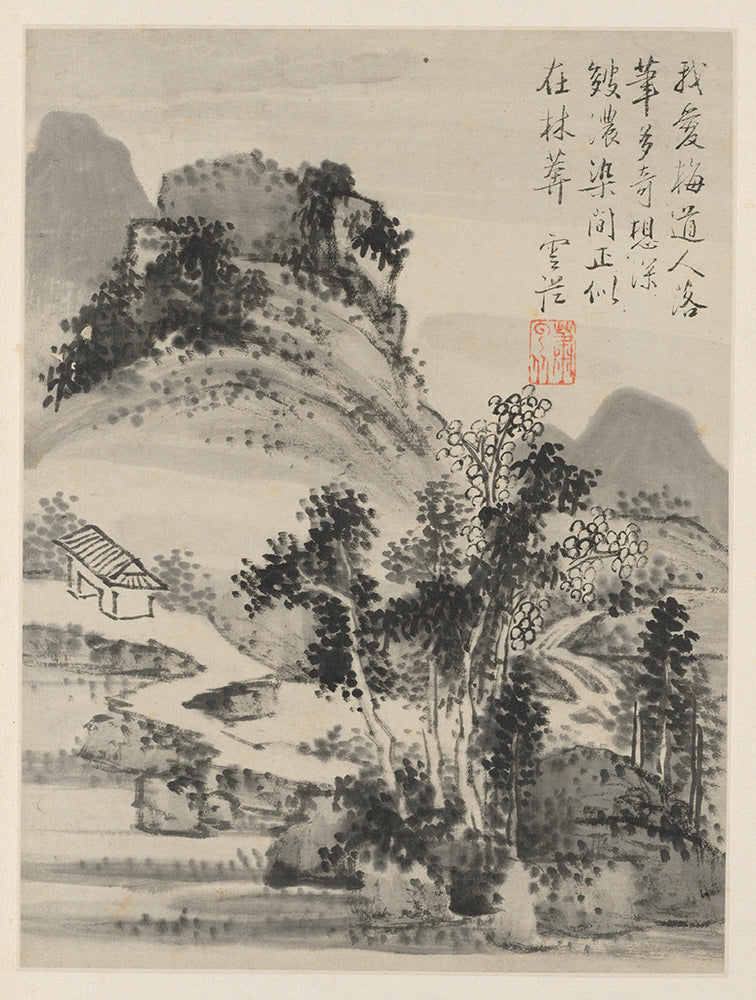 我愛梅道人落
筆多奇想深
皴濃染間正似
在林莽 雲從
蕭
云从